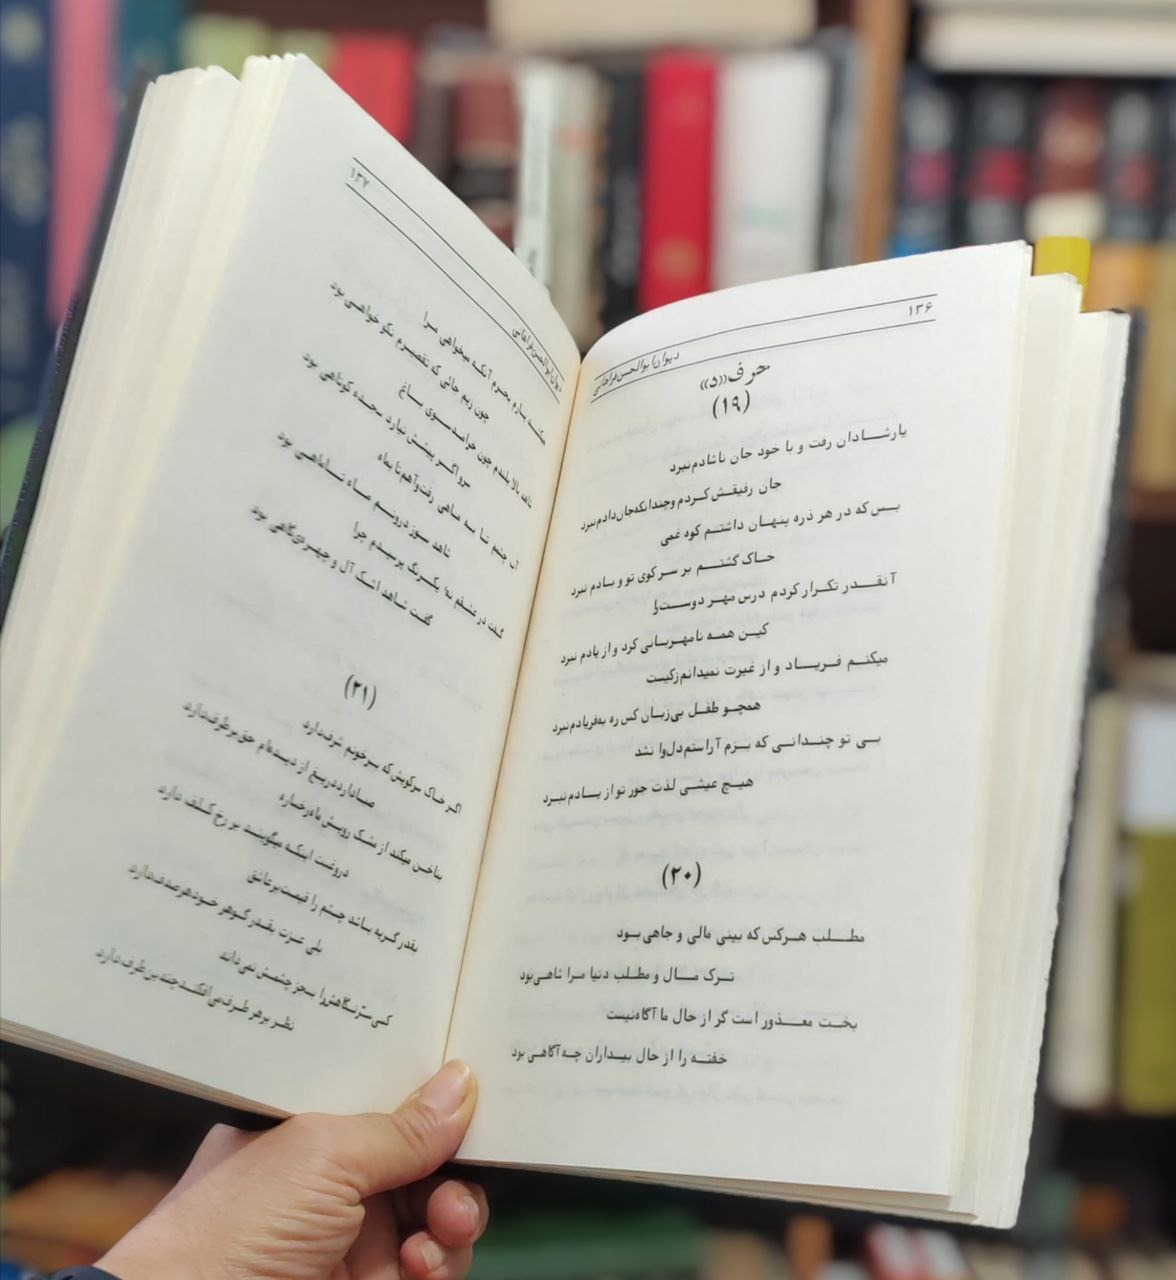 ۱۳۶
دیوان ابوالحسن فراهانی
حرف «د»
(۱۹)
یار شادان رفت و با خود جان ناشادم نبرد
جان رفیقش کردم و چندانکه جان دادم نبرد
بس که در هر ذره پنهان داشتم کوه غمی
خاک گشتم بر سر کوی تو و بادم نبرد
آنقدر تکرار کردم درس مهر دوست را
کین همه نامهربانی کرد و از یادم نبرد
میکنم فریاد و از غیرت نمیدانم زکیست
همچو طفل بی‌زبان کس ره به فریادم نبرد
بی تو چندانی که بزم آراستم دل وا نشد
هیچ عیشی لذت جور تو از یادم نبرد
(۲۰)
مطلب هرکس که بینی مالی و جاهی بود
ترک مال و مطلب دنیا مرا شاهی بود
بخت معذور است گر از حال ما آگاه نیست
خفته را از حال بیداران چه آگاهی بود
۱۳۷
دیوان ابوالحسن فراهانی
میکند یارم بجرم آنکه میخواهی مرا
چون زیم جائی که تقصیرم نکو خواهی بود
شاهد بالا بلندم چون خرامد سوی باغ
سرو اگر پیشش نیارد سجده کوتاهی بود
آب چشم تا به ماهی رفت و آهم تا بماه
شاهد سوز درونم ماه تا ماهی بود
گفت در عشقم نه‌ای یکرنگ پرسیدم چرا
گفت شاهد اشک آل و چهره‌ی کاهی بود
(۲۱)
اگر خاک سرکویش که برخونم شرف دارد
صبا دارد دریغ از دیده‌ام حق برطرف دارد
بناخن میکند از مشک رویش ماه رخساره
دروغست اینکه میگویند بر رخ کلف دارد
بقدر گریه باشد چشم را قیمت بر عاشق
بلی عزت بقدر گوهر خود هر صدف دارد
کسی سّر نگاهش را بجز چشمش نمی‌داند
نظر بر هر طرف می‌افکند چندین طرف دارد